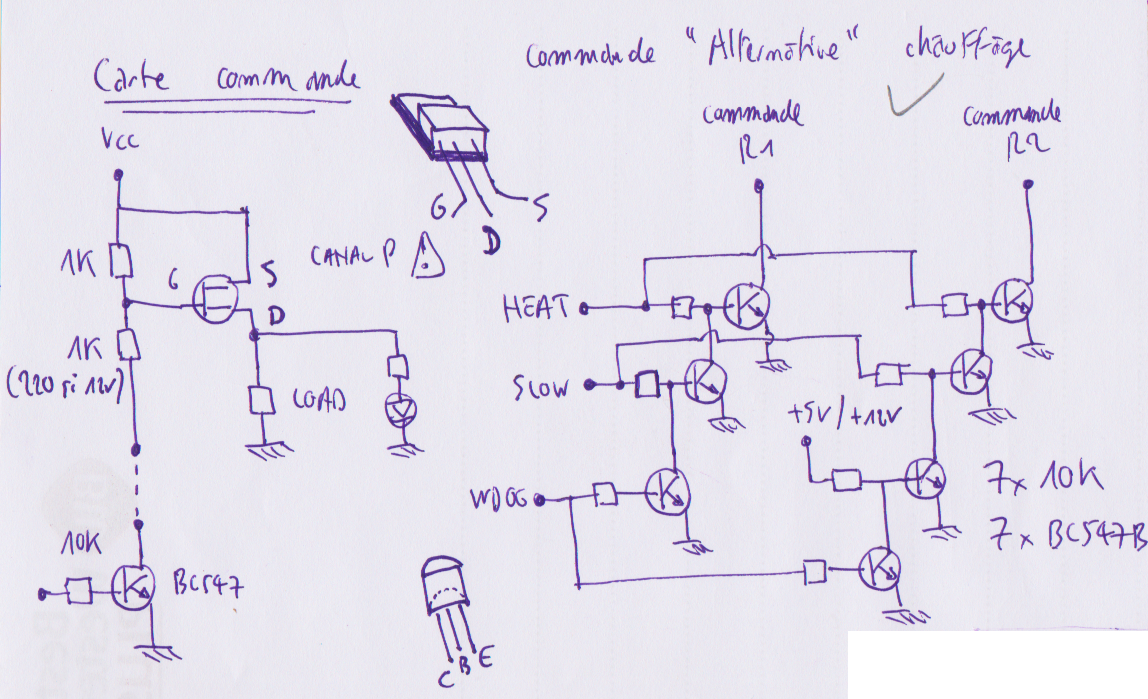 Carte commande
Commande "Alternative" chauffage
Vcc
Commande
R1
Commande
R2
G
D
S
CANAL P !
1K
G
S
D
HEAT
1K
(220 si 12V)
LOAD
SLOW
+5V/+12V
WDOG
7x 10K
7x BC547B
10K
BC547
C
B
E